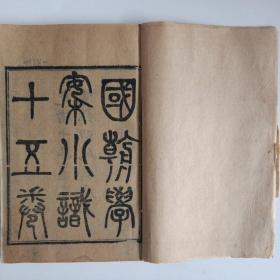 國朝學
案小識
十五卷